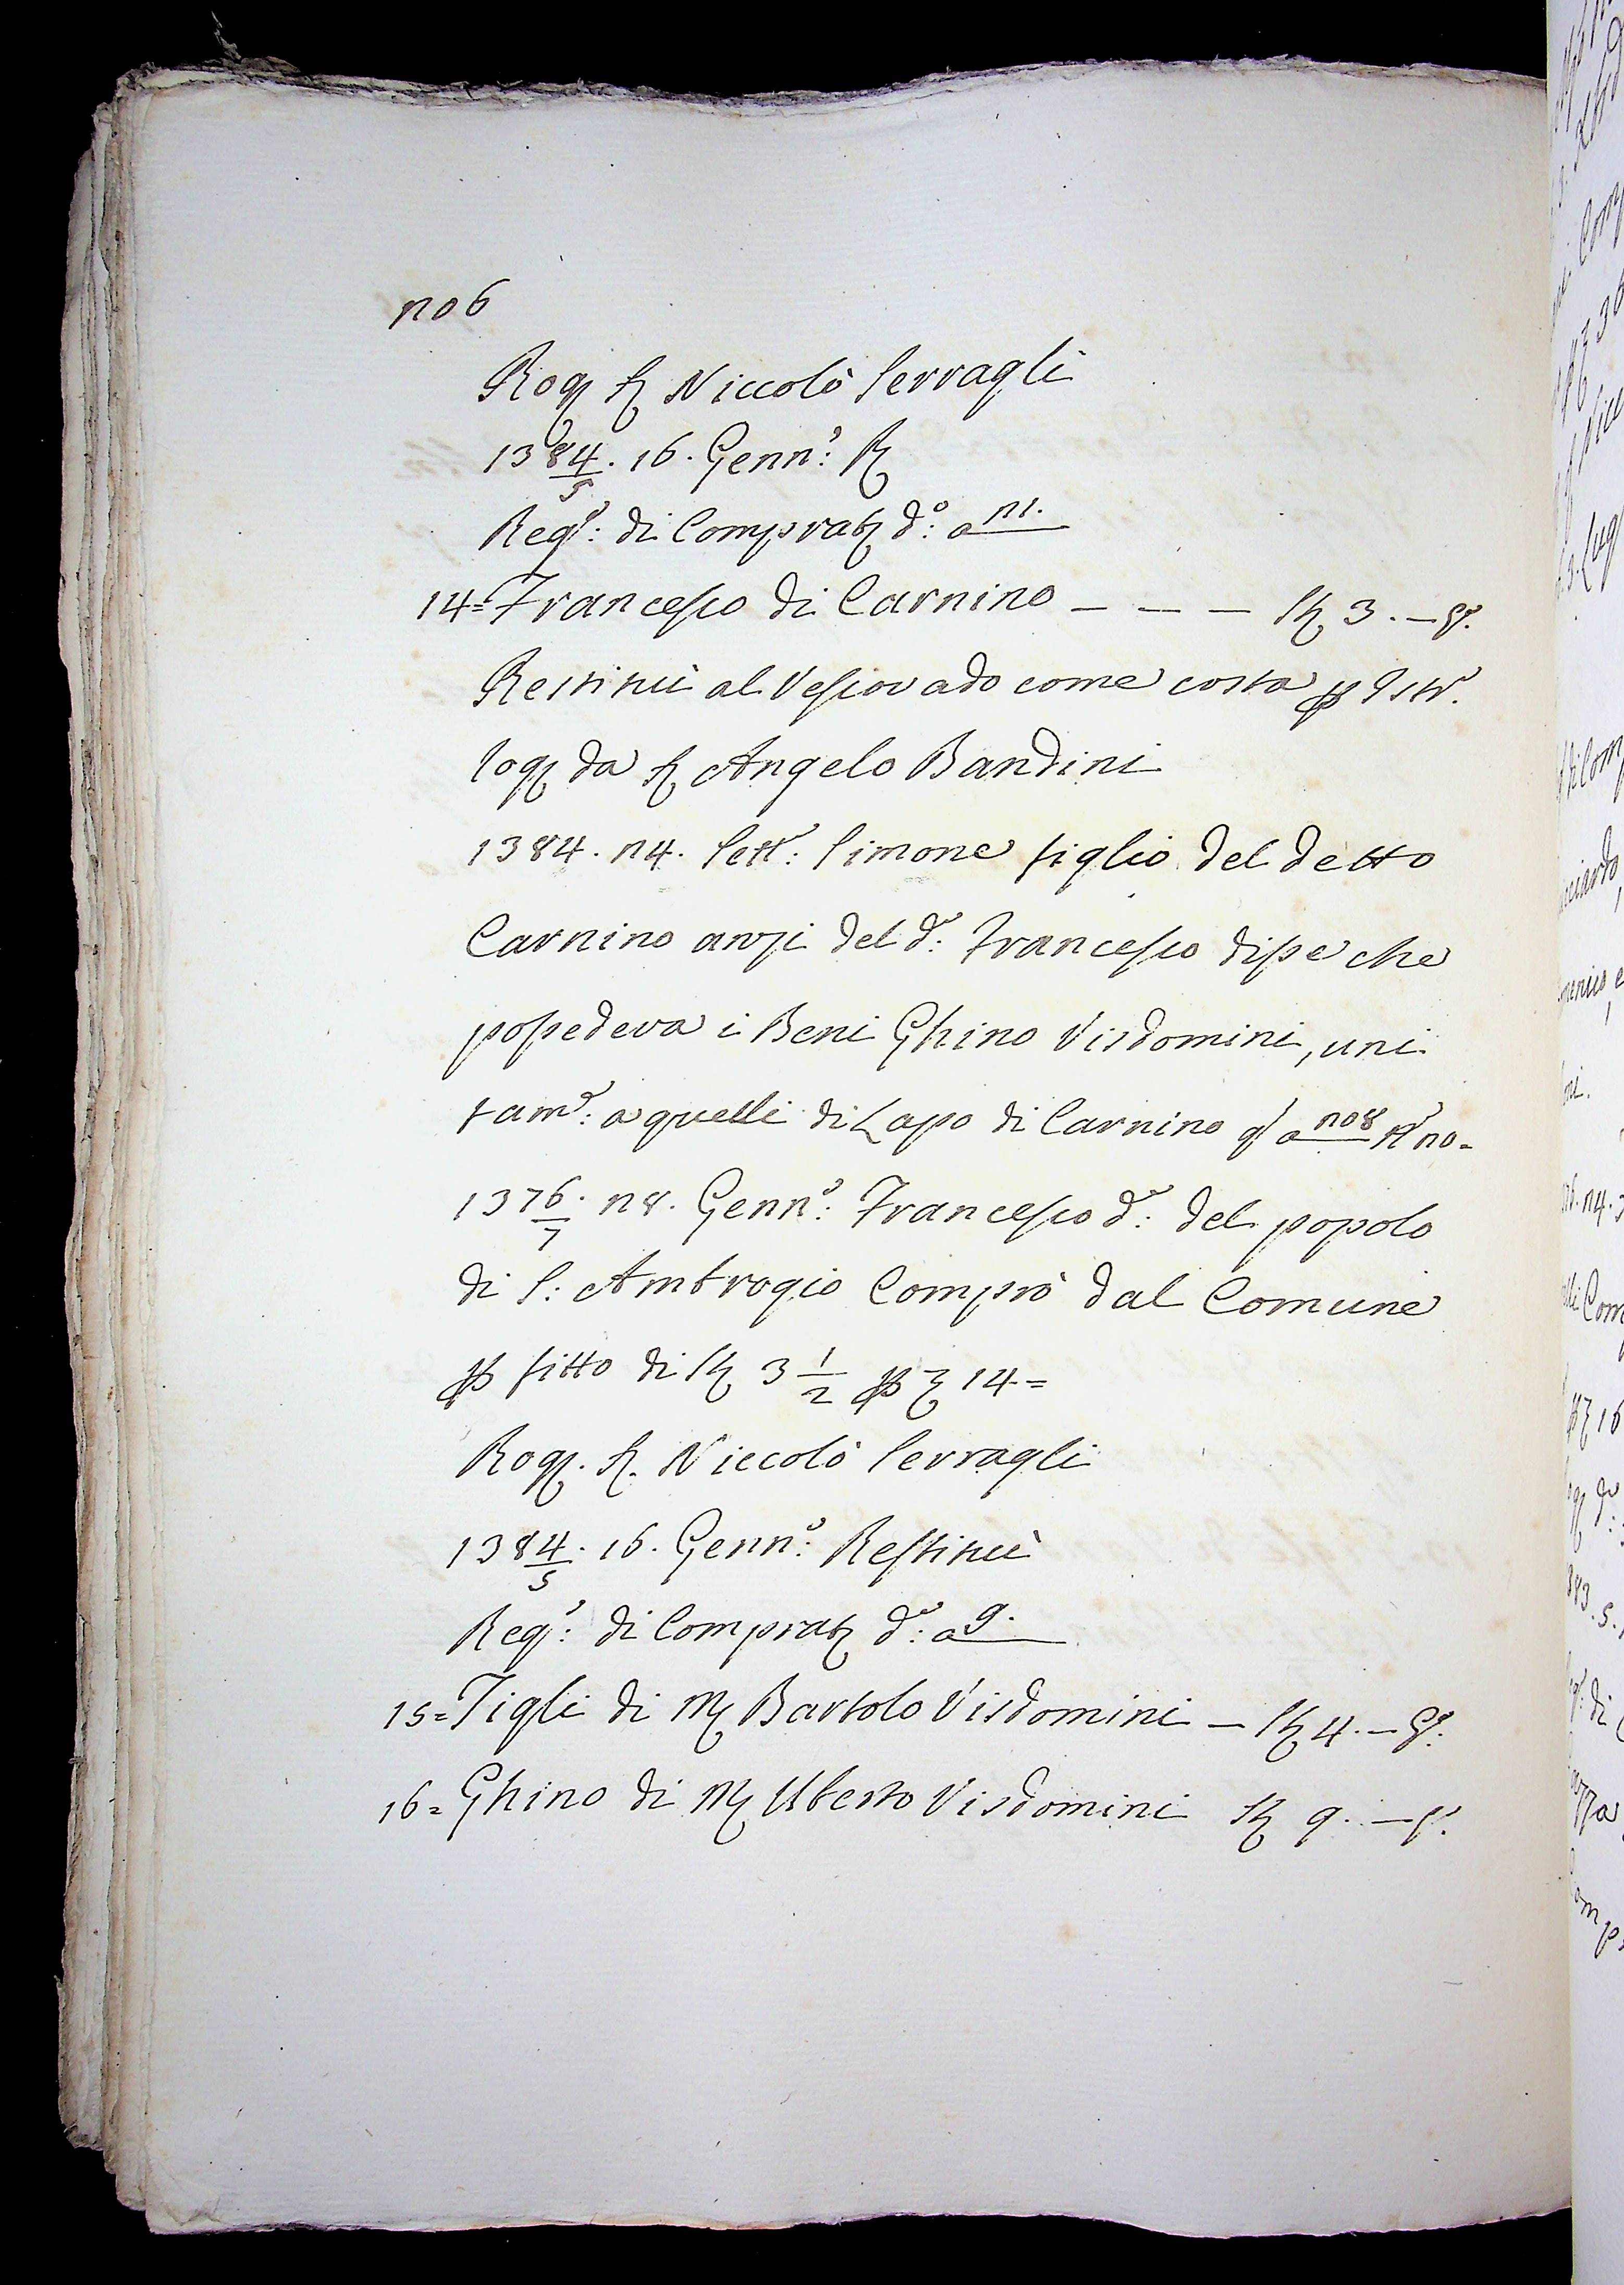 206
Rog Ser Niccolò Serragli
1384/5. 16. Genn.º: R
Reg.º: di Comprat d.º: a 21.
14= Francesco di Carnino - - - St 3. - gr.
Restituì al Vescovado come costa p Istr.º
rog da Ser Angelo Bandini
1384. 24. Sett.º: Simone figlio del detto
Carnino anzi del d.º: Francesco disse che
possedeva i Beni Ghino Visdomini, uni
tam.e: a quelli di Lapo di Carnino q a 208 n.º 20=
1376/7. 28. Genn.º: Francesco d.º: del popolo
di S: Ambrogio Comprò dal Comune
p fitto di St 3 1/2 p 14=
Rog. Ser. Niccolò Serragli
1384/5. 16. Genn.º: Restituì
Reg.º: di Comprat d.º: a 9.
15= Figli di M Bartolo Visdomini - St 4. - gr.
16= Ghino di M Uberto Visdomini St 9. - gr.